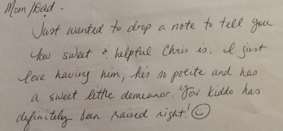 Mom/Dad -
Just wanted to drop a note to tell you
how sweet & helpful Chris is. I just
love having him, he's so polite and has
a sweet little demeanor. Your kiddo has
definitely been raised right! ☺